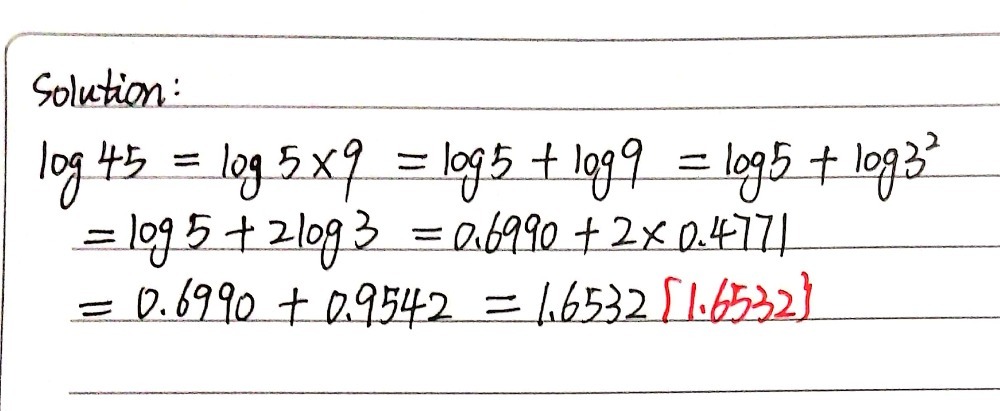 Solution:
log 45 = log 5×9 = log5 + log9 = log5 + log3²
= log 5 + 2log 3 = 0.6990 + 2× 0.4771
= 0.6990 + 0.9542 = 1.6532 {1.6532}